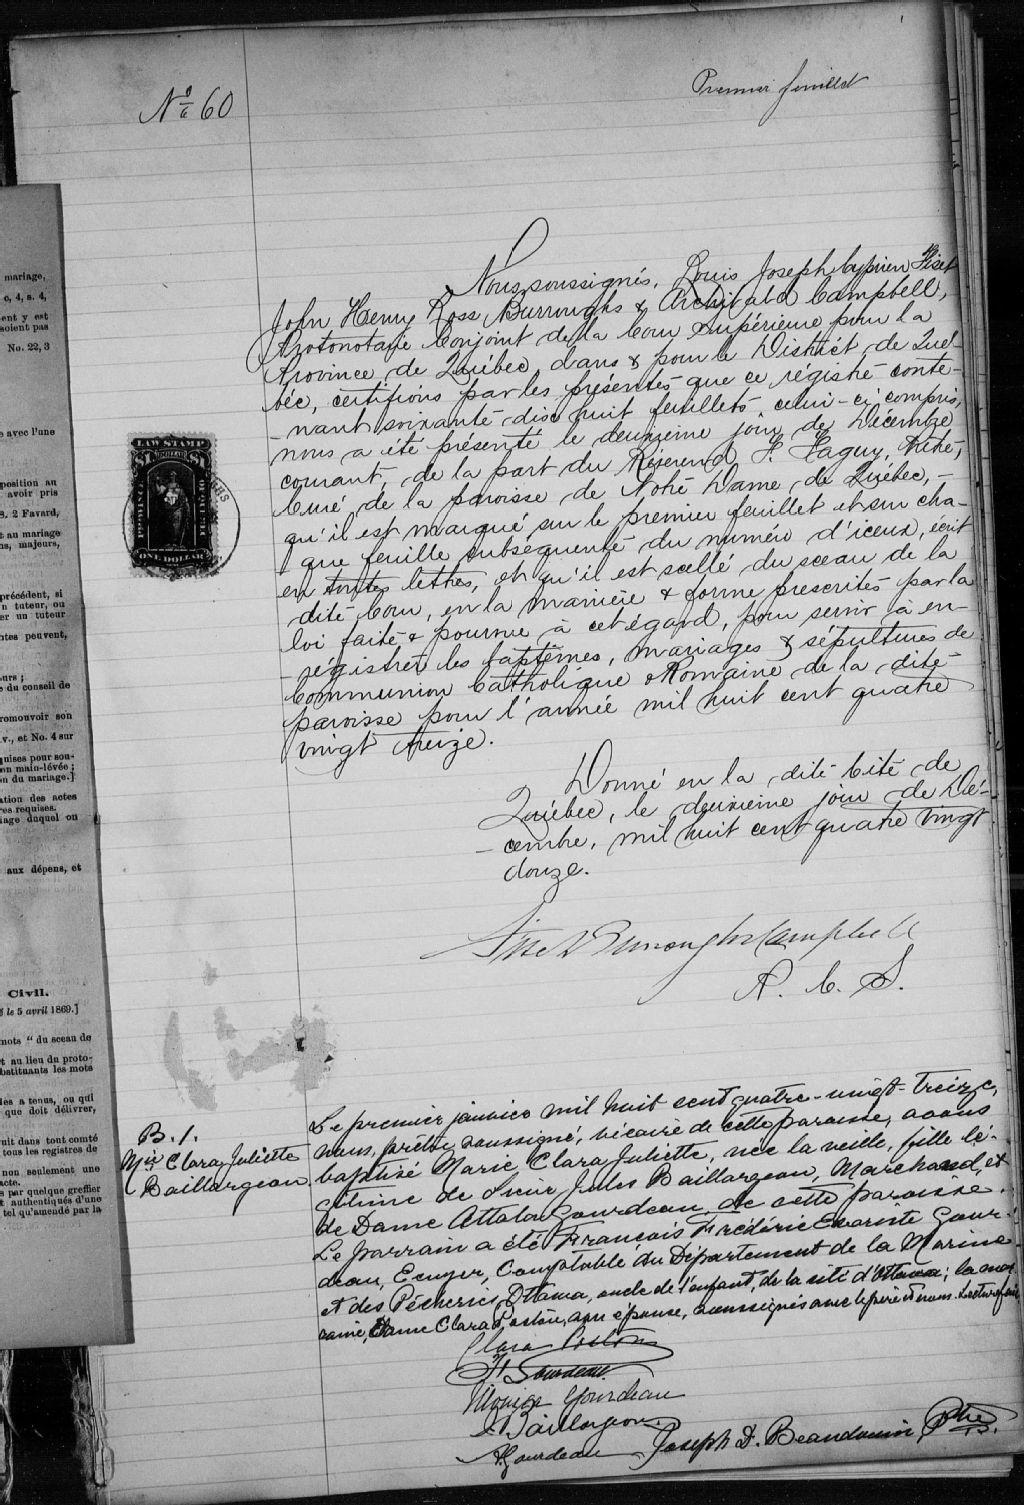 mariage,
c, 4, s. 4,
ent y est
soient pas
No. 22, 3
e avec l'une
position au
avoir pris
s. 2 Favard,
t au mariage
ns, majeurs,
précédent, si
n tuteur, ou
er un tuteur
ntes peuvent,
urs ;
e du conseil de
romouvoir son
v., et No. 4 sur
quises pour sou-
on main-lévée ;
n du mariage.]
ation des actes
res requises.
iage duquel ou
aux dépens, et
Civil.
le 5 avril 1869.]
mots " du sceau de
t au lieu du proto-
bstituants les mots
les a tenus, ou qui
que doit délivrer,
uit dans tout comté
tous les registres de
non seulement une
acte.
s par quelque greffier
t authentiqués d'une
tel qu'amendé par la
No 60
Premier feuillet
LAW STAMP
$1 DOLLAR $1
ONE DOLLAR
Nous soussignés, Louis Joseph Cyprien Fiset
John Henry Ross Burroughs & Archibald Campbell,
Protonotaire Conjoint de la Cour Supérieure pour la
Province de Québec dans & pour le District de Qué-
bec, certifions par les présentes que ce régistre conte-
-nant soixante-dix huit feuillets, celui-ci compris,
nous a été présenté le deuxième jour de Décembre
courant, de la part du Réverend F. Faguy, Ptre,
Curé, de la paroisse de Notre Dame de Québec, -
qu'il est marqué sur le premier feuillet et sur cha-
que feuille subséquente du numéro d'iceux, écrit
en toutes lettres, et qu'il est scellé du sceau de la
dite Cour, en la manière & forme prescrites par la
loi faite & pourvue à cet égard, pour servir à en-
-régistrer les baptêmes, mariages & sépultures de
Communion Catholique Romaine de la dite
paroisse pour l'année mil huit cent quatre
vingt treize.
Donné en la dite Cité de
Québec, le deuxième jour de Dé-
-cembre, mil huit cent quatre vingt
douze.
Fiset Burroughs Campbell
P. C. S.
B. 1.
Mie Clara Juliette
Baillargeon
Le premier janvier mil huit cent quatre-vingt-treize,
nous, prêtre soussigné, vicaire de cette paroisse, avons
baptisé Marie, Clara Juliette, née la veille, fille lé-
gitime de Sieur Jules Baillargeon, Marchand, et
de Dame Attala Gourdeau, de cette paroisse.
Le parrain a été François Frédéric Evariste Gour-
deau, Ecuyer, Comptable du Département de la Marine
et des Pêcheries, Ottawa, oncle de l'enfant, de la cité d'Ottawa; la mar-
raine, Dame Clara Poston, son épouse, soussignés avec le père et nous. Lecture faite
Clara Poston
F Gourdeau
Gourdeau
J Baillargeon
A. Gourdeau Joseph D. Beaudouin Ptre